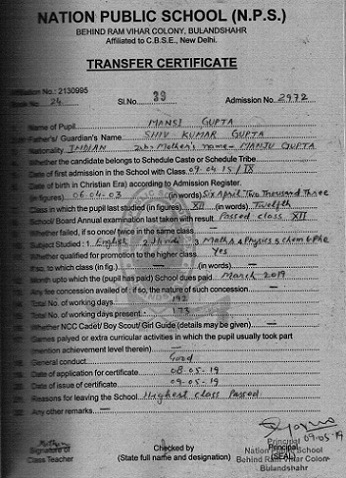 NATION PUBLIC SCHOOL (N.P.S.)
BEHIND RAM VIHAR COLONY, BULANDSHAHR
Affiliated to C.B.S.E., New Delhi.
TRANSFER CERTIFICATE
Affiliation No.: 2130995
Book No. 24 Sl.No. 39 Admission No. 2972
Name of Pupil MANSI GUPTA
Father's/ Guardian's Name SHIV KUMAR GUPTA
Nationality INDIAN Mother's name- MANJU GUPTA
Whether the candidate belongs to Schedule Caste or Schedule Tribe
Date of first admission in the School with Class 09.04.15/IX
Date of birth in Christian Era) according to Admission Register
(in figures) 06.04.03 (in words) Six April Two Thousand Three
Class in which the pupil last studied (in figures) XII (in words) Twelfth
School/ Board Annual examination last taken with result Passed class XII
Whether failed, if so once/ twice in the same class —
Subject Studied : 1 English 2 Hindi 3 Math 4 Physics 5 chem 6 Phe
Whether qualified for promotion to the higher class Yes
If so, to which class (in fig.) — (in words) —
Month upto which the (pupil has paid) School dues paid March 2019
Any fee concession availed of : if so, the nature of such concession —
Total No. of working days 192
Total No. of working days present 175
Whether NCC Cadet/ Boy Scout/ Girl Guide (details may be given) —
Games palyed or extra curricular activities in which the pupil usually took part
mention achievement level therein) —
General conduct Good
Date of application for certificate 08-05-19
Date of issue of certificate 09-05-19
Reasons for leaving the School Highest class Passed
Any other remarks —
Principal 09-05-19
Signature of Checked by Principal
Class Teacher (State full name and designation) (SEAL)
Nation Public School
Behind Ram Vihar Colony
Bulandshahr